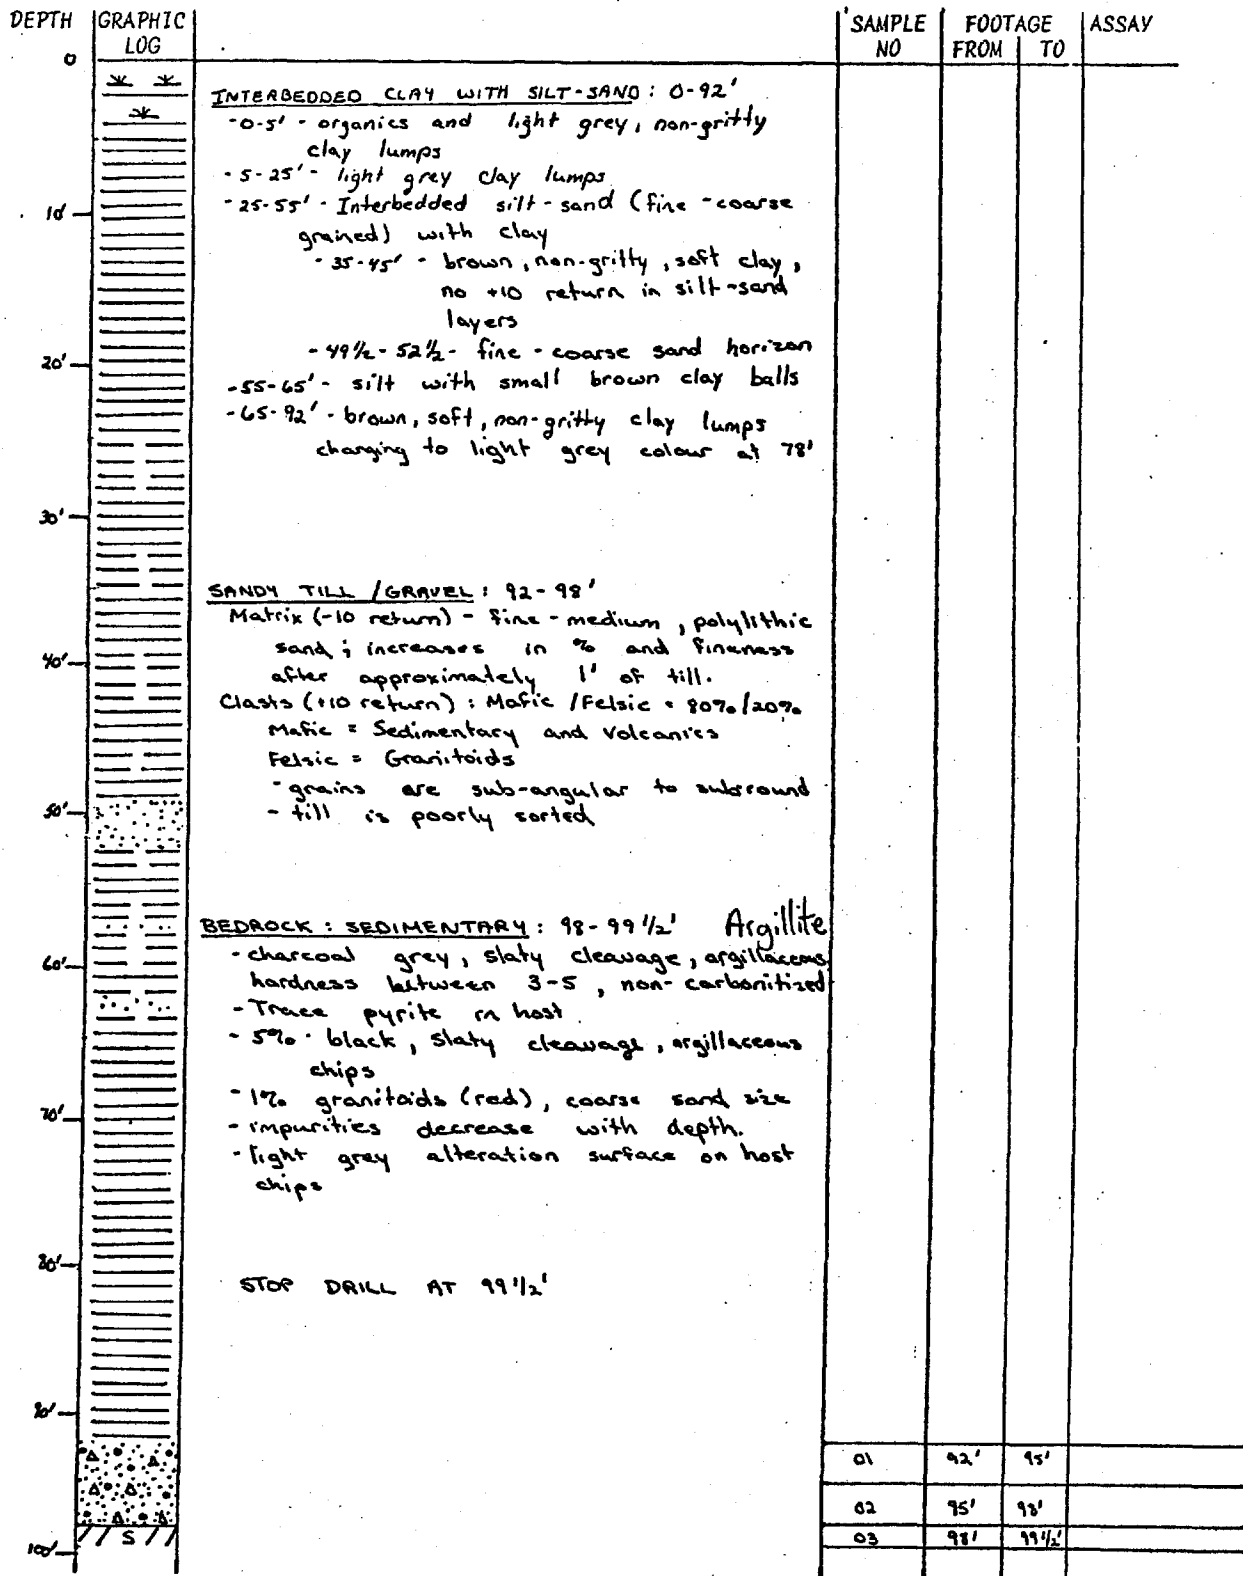 DEPTH GRAPHIC LOG SAMPLE NO FOOTAGE FROM TO ASSAY
0
INTERBEDDED CLAY WITH SILT-SAND: 0-92'
-0-5' - organics and light grey, non-gritty
clay lumps
-5-25' - light grey clay lumps
10'
-25-55' - Interbedded silt-sand (fine-coarse
grained) with clay
-35-45' - brown, non-gritty, soft clay,
no +10 return in silt-sand
layers
-49½-52½- fine-coarse sand horizon
20'
-55-65' - silt with small brown clay balls
-65-92' - brown, soft, non-gritty clay lumps
changing to light grey colour at 78'
30'
SANDY TILL/GRAVEL: 92-98'
Matrix (-10 return) - fine-medium, polylithic
sand; increases in % and fineness
40'
after approximately 1' of till.
Clasts (+10 return): Mafic/Felsic = 80%/20%
Mafic = Sedimentary and Volcanics
Felsic = Granitoids
-grains are sub-angular to subround
50'
- till is poorly sorted
BEDROCK: SEDIMENTARY: 98-99 1/2' Argillite
-charcoal grey, slaty cleavage, argillaceous
60'
hardness between 3-5, non-carbonitized
-Trace pyrite in host
-5% black, slaty cleavage, argillaceous
chips
-1% granitoids (red), coarse sand size
70'
-impurities decrease with depth.
-light grey alteration surface on host
chips
80'
STOP DRILL AT 99 1/2'
90'
01 92' 95'
02 95' 98'
S
03 98' 99 1/2'
100'